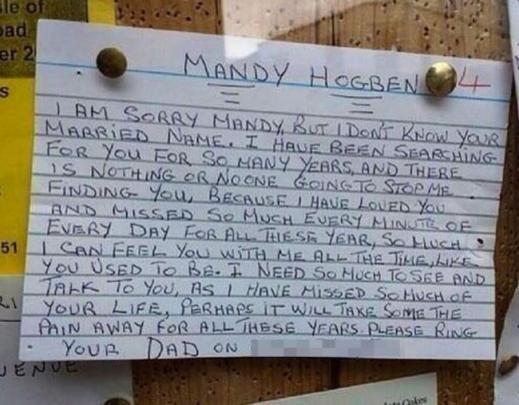 le of
oad
er 2
s
51
MANDY HOGBEN 4
I AM SORRY MANDY, BUT I DON'T KNOW YOUR
MARRIED NAME. I HAVE BEEN SEARCHING
FOR YOU FOR SO MANY YEARS, AND THERE
IS NOTHING OR NO ONE GOING TO STOP ME
FINDING YOU, BECAUSE I HAVE LOVED YOU
AND MISSED SO MUCH EVERY MINUTE OF
EVERY DAY FOR ALL THESE YEAR, SO MUCH
I CAN FEEL YOU WITH ME ALL THE TIME, LIKE
YOU USED TO BE. I NEED SO MUCH TO SEE AND
TALK TO YOU, AS I HAVE MISSED SO MUCH OF
YOUR LIFE, PERHAPS IT WILL TAKE SOME THE
PAIN AWAY FOR ALL THESE YEARS PLEASE RING
YOUR DAD ON
RI
VENUE
Cakes